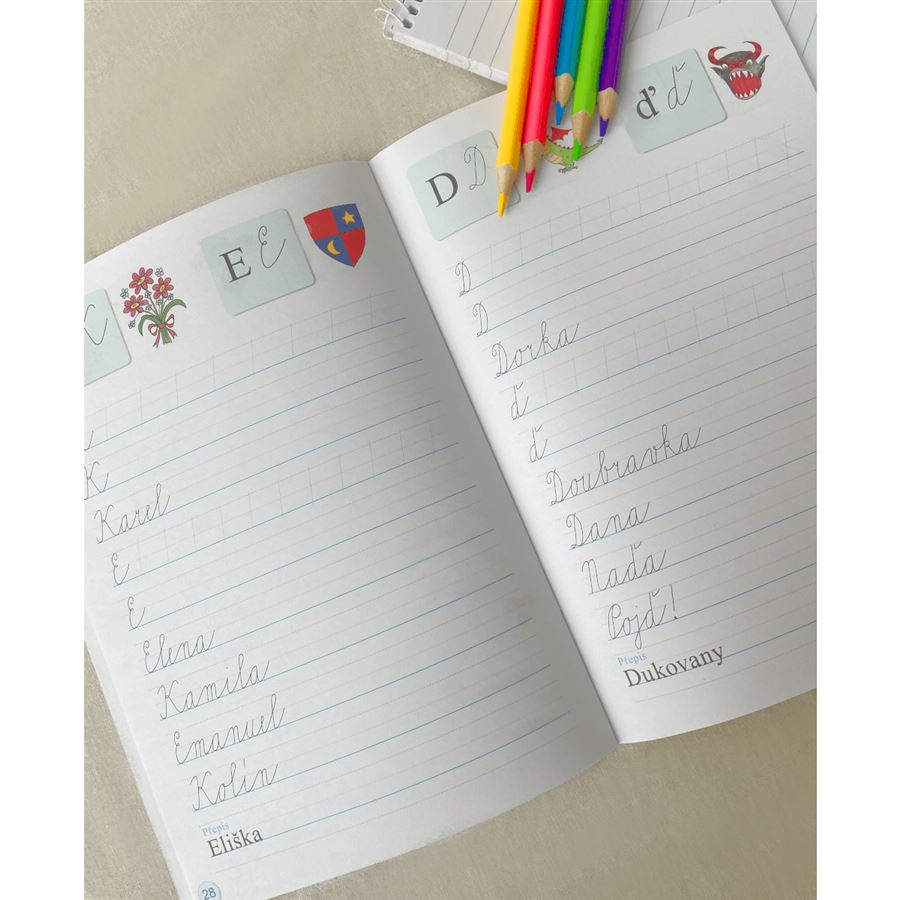 K
E E
K
Karel
E
E
Elena
Kamila
Emanuel
Kolín
Přepis
Eliška
28
D D
ď ď
D
D
Dorka
ď
ď
Doubravka
Dana
Naďa
Pojď!
Přepis
Dukovany